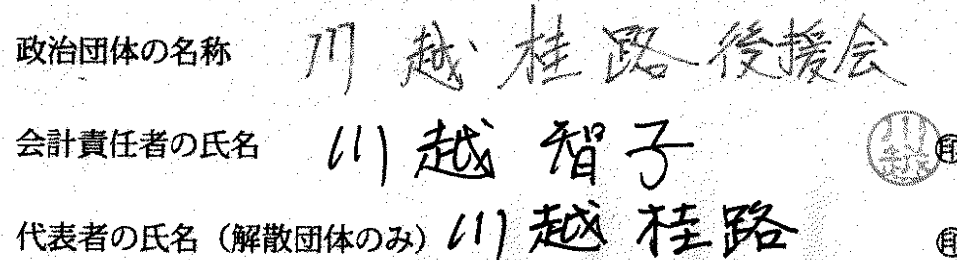 政治団体の名称 川越桂路後援会
会計責任者の氏名 川越智子 川越 ㊞
代表者の氏名（解散団体のみ）川越桂路 ㊞